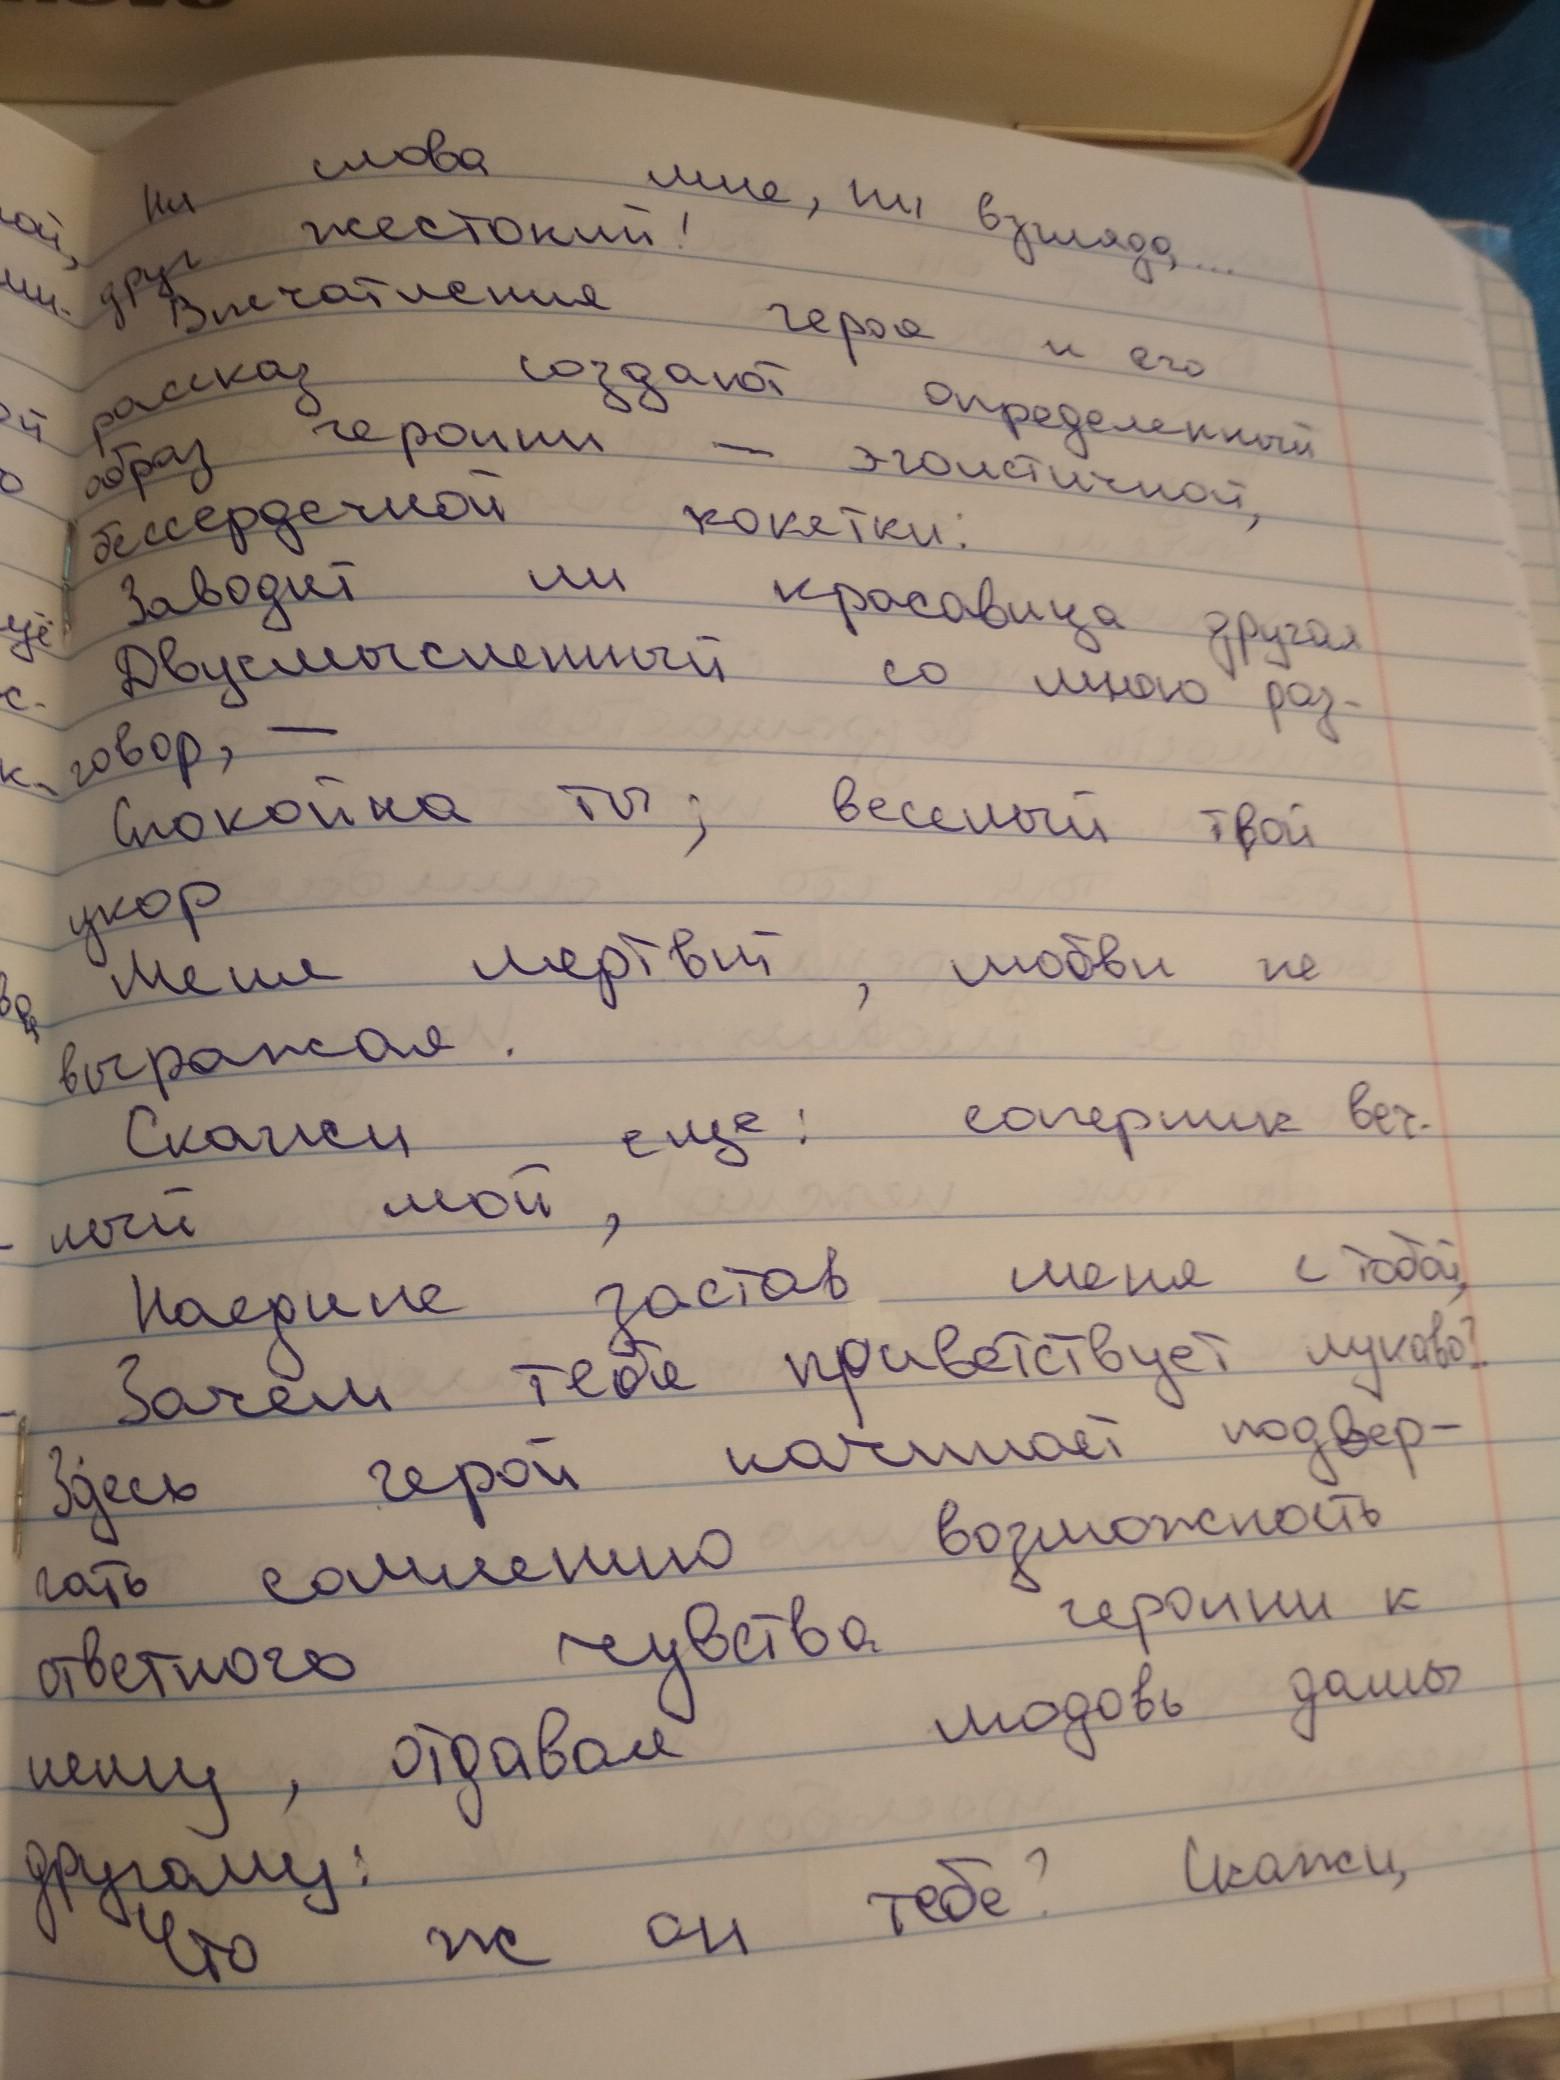 ни слова мне, ни взгляда...
друг жестокий!
Впечатления героя и его
рассказ создают определенный
образ героини — эгоистичной,
бессердечной кокетки:
Заводит ли красавица другая
Двусмысленный со мною раз-
говор, —
Спокойна ты; веселый твой
укор
Меня мертвит, любви не
выражая.
Скажи еще: соперник веч-
ный мой,
Наедине застав меня с тобой,
Зачем тебя приветствует лукаво?
Здесь герой начинает подвер-
гать сомнению возможность
ответного чувства героини к
нему, отдавая людовь дамы
другому:
Что ж он тебе? Скажи,